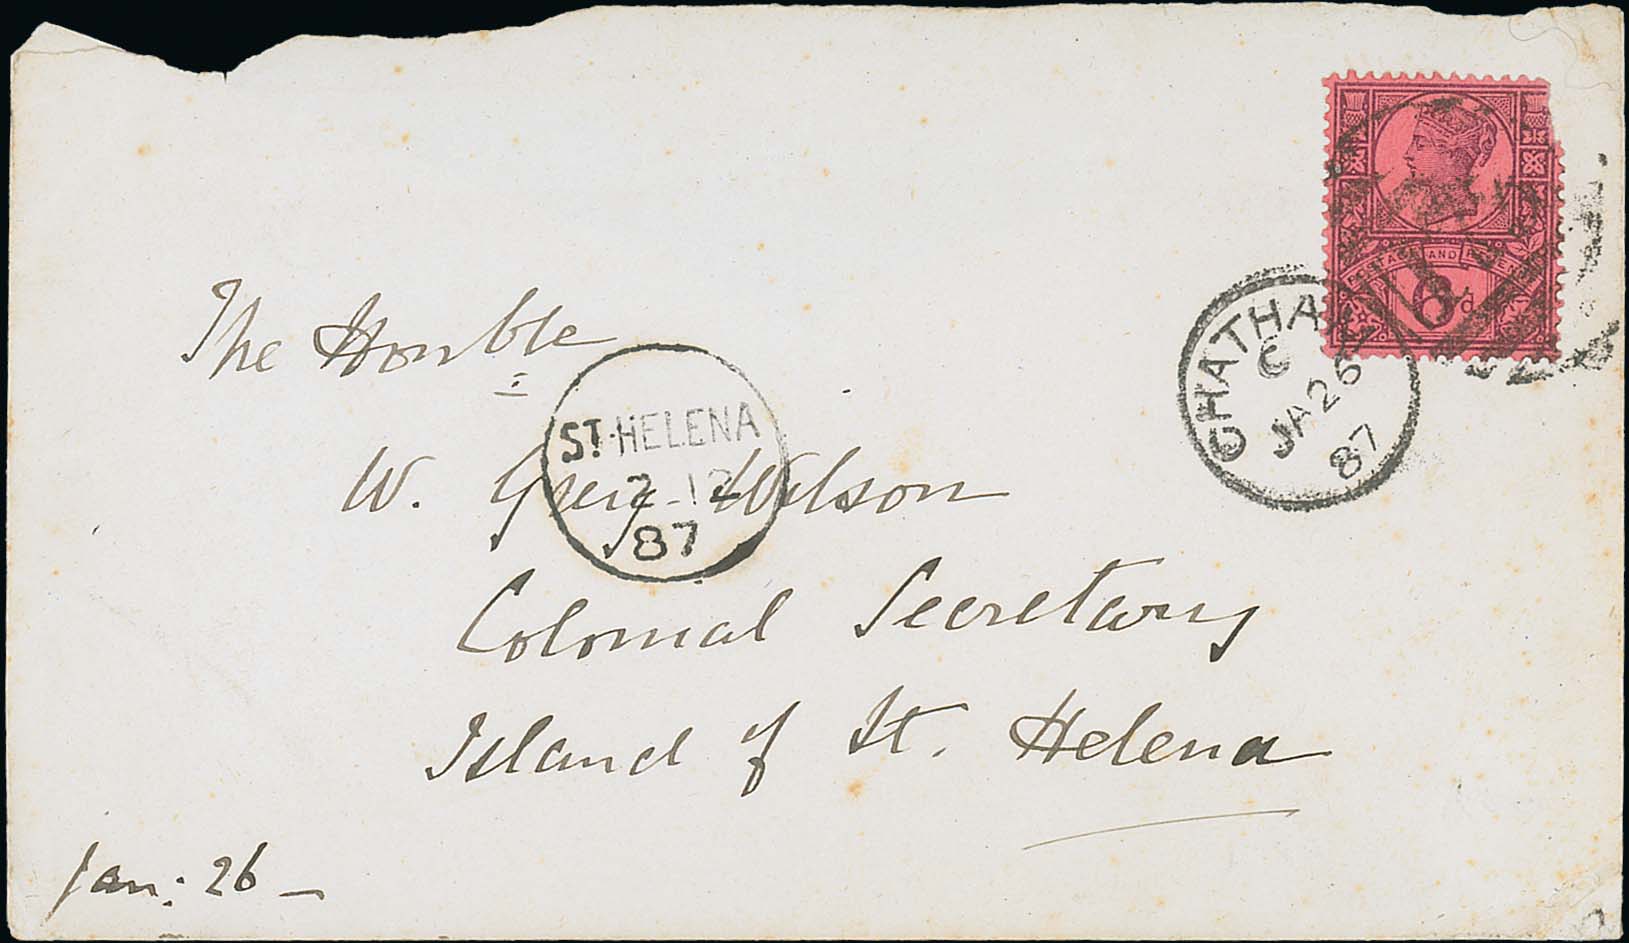 POSTAGE AND REVEN
6d
CHATHA
C
JA 26
87
The Honble
ST. HELENA
2 12
87
W. Grey-Wilson
Colonial Secretary
Island of St. Helena
Jan: 26 -